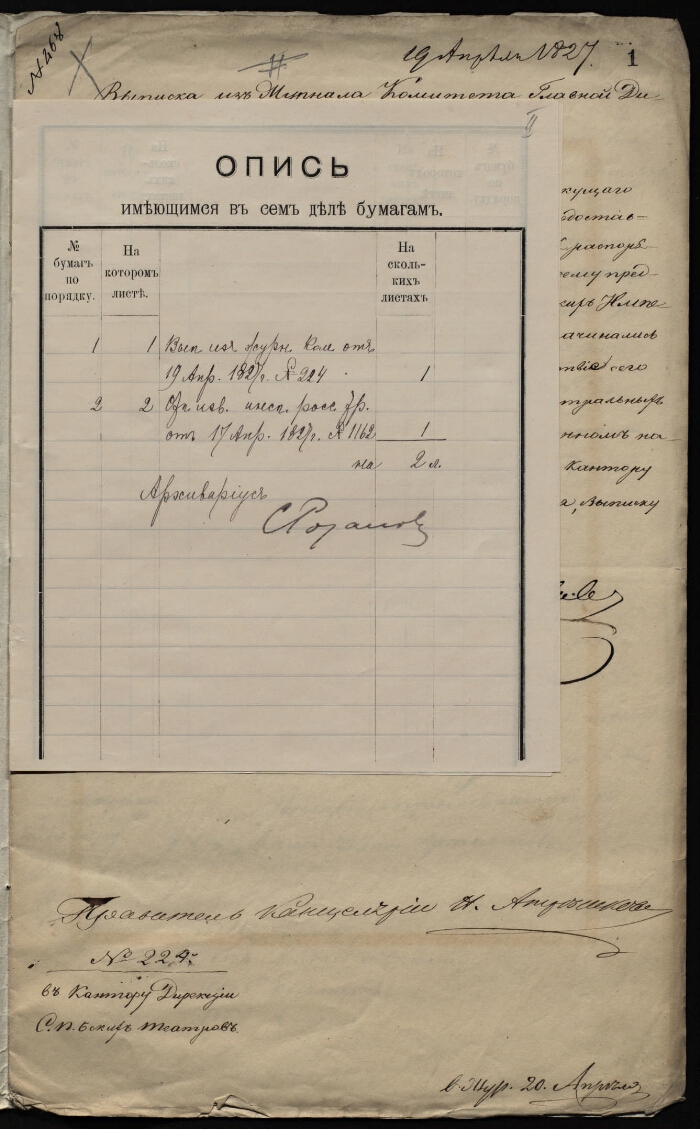 № 268
19 Апрѣля 1827. 1
Выписка изъ Журнала Комитета Главной Ди-
II
ОПИСЬ
имѣющимся въ семъ дѣлѣ бумагамъ.
№ бумагъ по порядку.
На которомъ листѣ.
На сколь-кихъ листахъ
1 1 Вып изъ журн. Ком отъ
19 Апр. 1827г. № 224 . 1
2 2 инсп. росс. тр.
отъ 17 Апр. 1827г. № 1162 1
на 2 л.
Архиваріусъ
кущаго
едостав-
распоря-
ему пред-
киръ Импе-
ачинались
твіе его
тральныхъ
нномъ на-
Кантору
а, Выписку
Правитель Канцеляріи
№ 224.
въ Кантору Дирекціи
С.П.Бскихъ театровъ
в. Жур. 20. Апрѣля